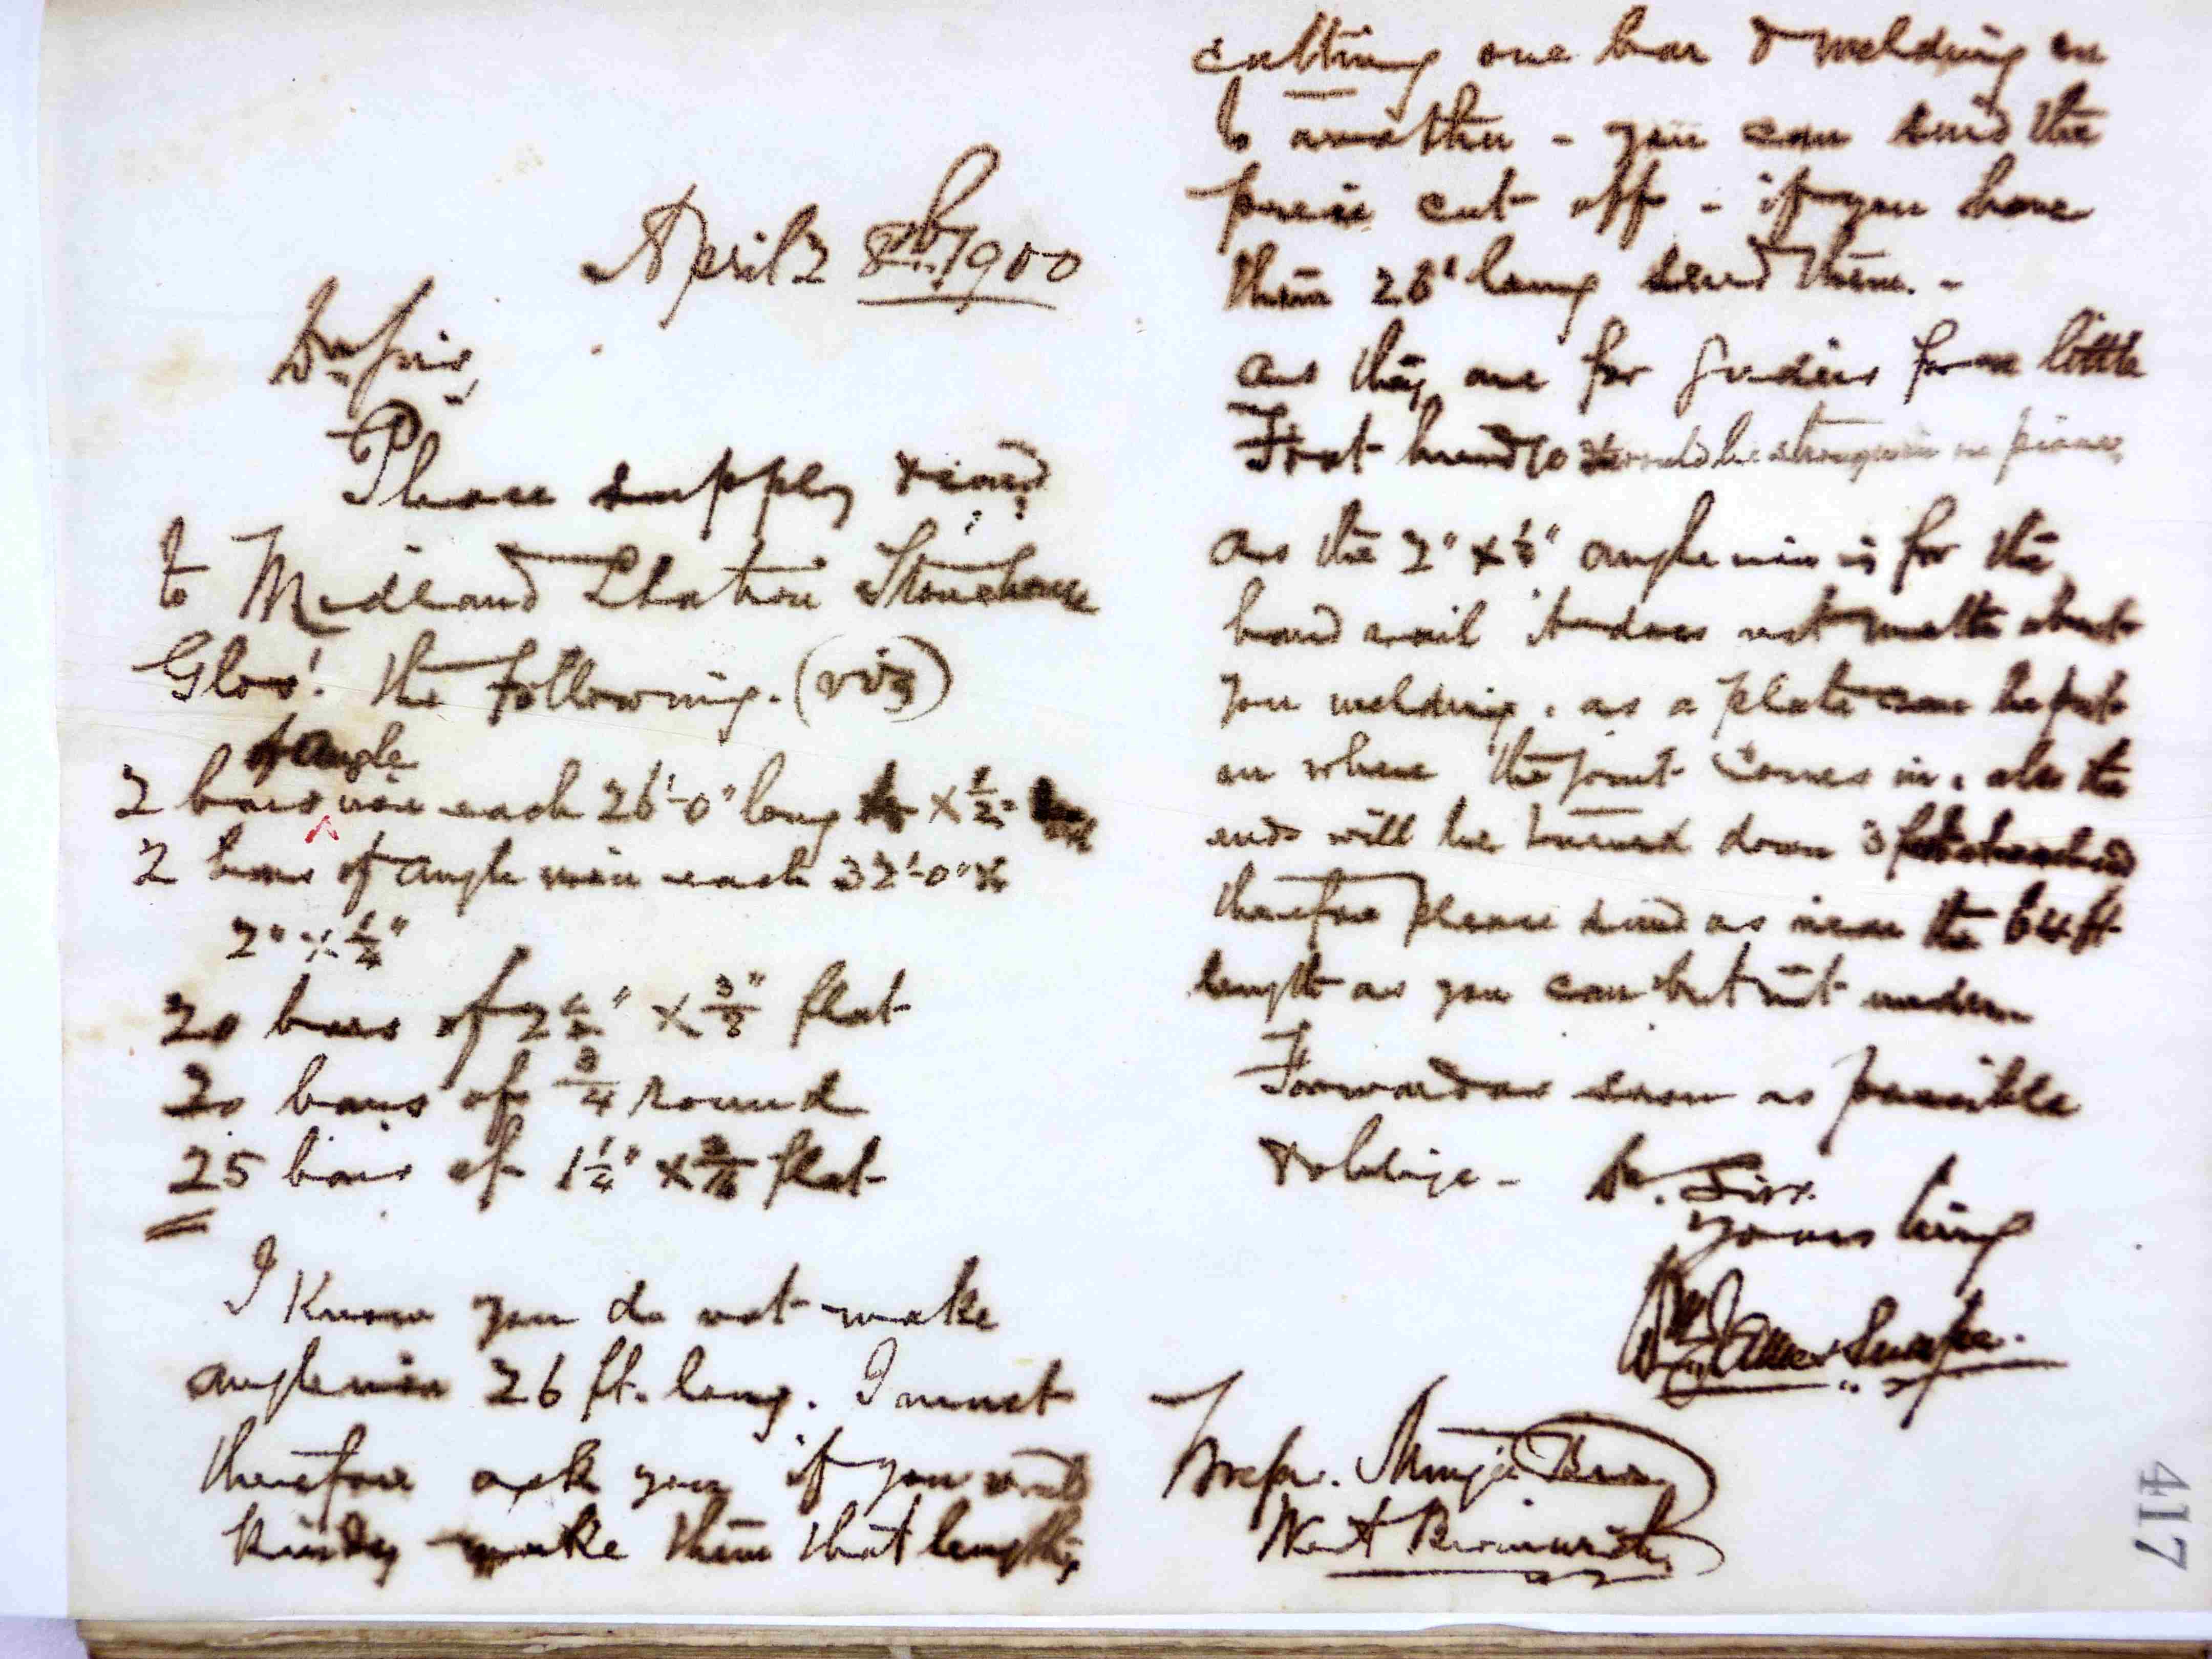 April 28th. 1900
Dr Sirs,
Please supply & send
to Midland Station Stonehouse
Glos! the following. (viz)
of angle
2 bars iron each 26'-0" long × 1/2"
2 bars of angle iron each 32'-0" ×
2" × 1/4"
20 bars of 2 " × 3/8" flat
20 bars of 3/4 round
25 bars of 1 1/4" × flat
I know you do not make
angle iron 26 ft. long. I must
therefore ask you if you would
kindly make them that length,
cutting one bar & welding on
to another - you can send the
piece cut off - if you have
them 26' long send them. -
as they are for girders for a little
Foot bridge
as the 2" × " angle iron is for the
hand rail it does not matter about
you welding, as a plate can be put
on where the joint comes in, also the
ends will be turned down 3
therefore please send as near the 64 ft
length as you can but not under
Forward as soon as possible
& oblige - Dr. Sirs
yours truly
Messrs. Bros
West Bromwich
417